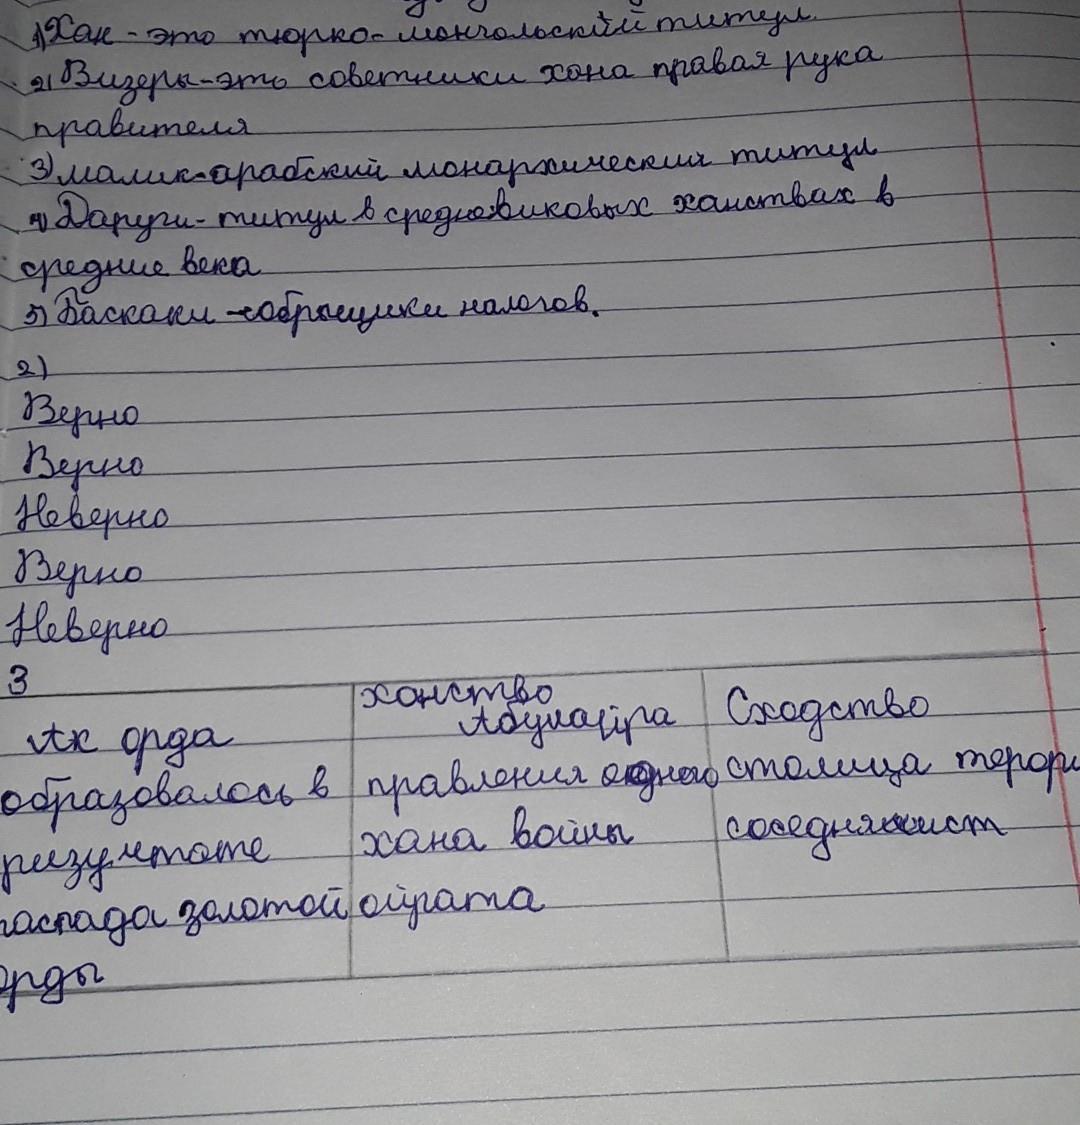 1) Хан - это тюрко-монгольский титул.
2) Визеры-это советники хана правая рука
правителя
3) малик-арабский монархический титул
4) Даруги-титул в средновиковых ханствах в
средние века
5) Баскаки - сборщики налогов.
2)
Верно
Верно
Неверно
Верно
Неверно
3
Ак орда
ханство
Абулаıіра
Сходство
образовалось в
правления одного
столица терори
ризултате
хана войны
соседня
распада золотой
ойрата
орды